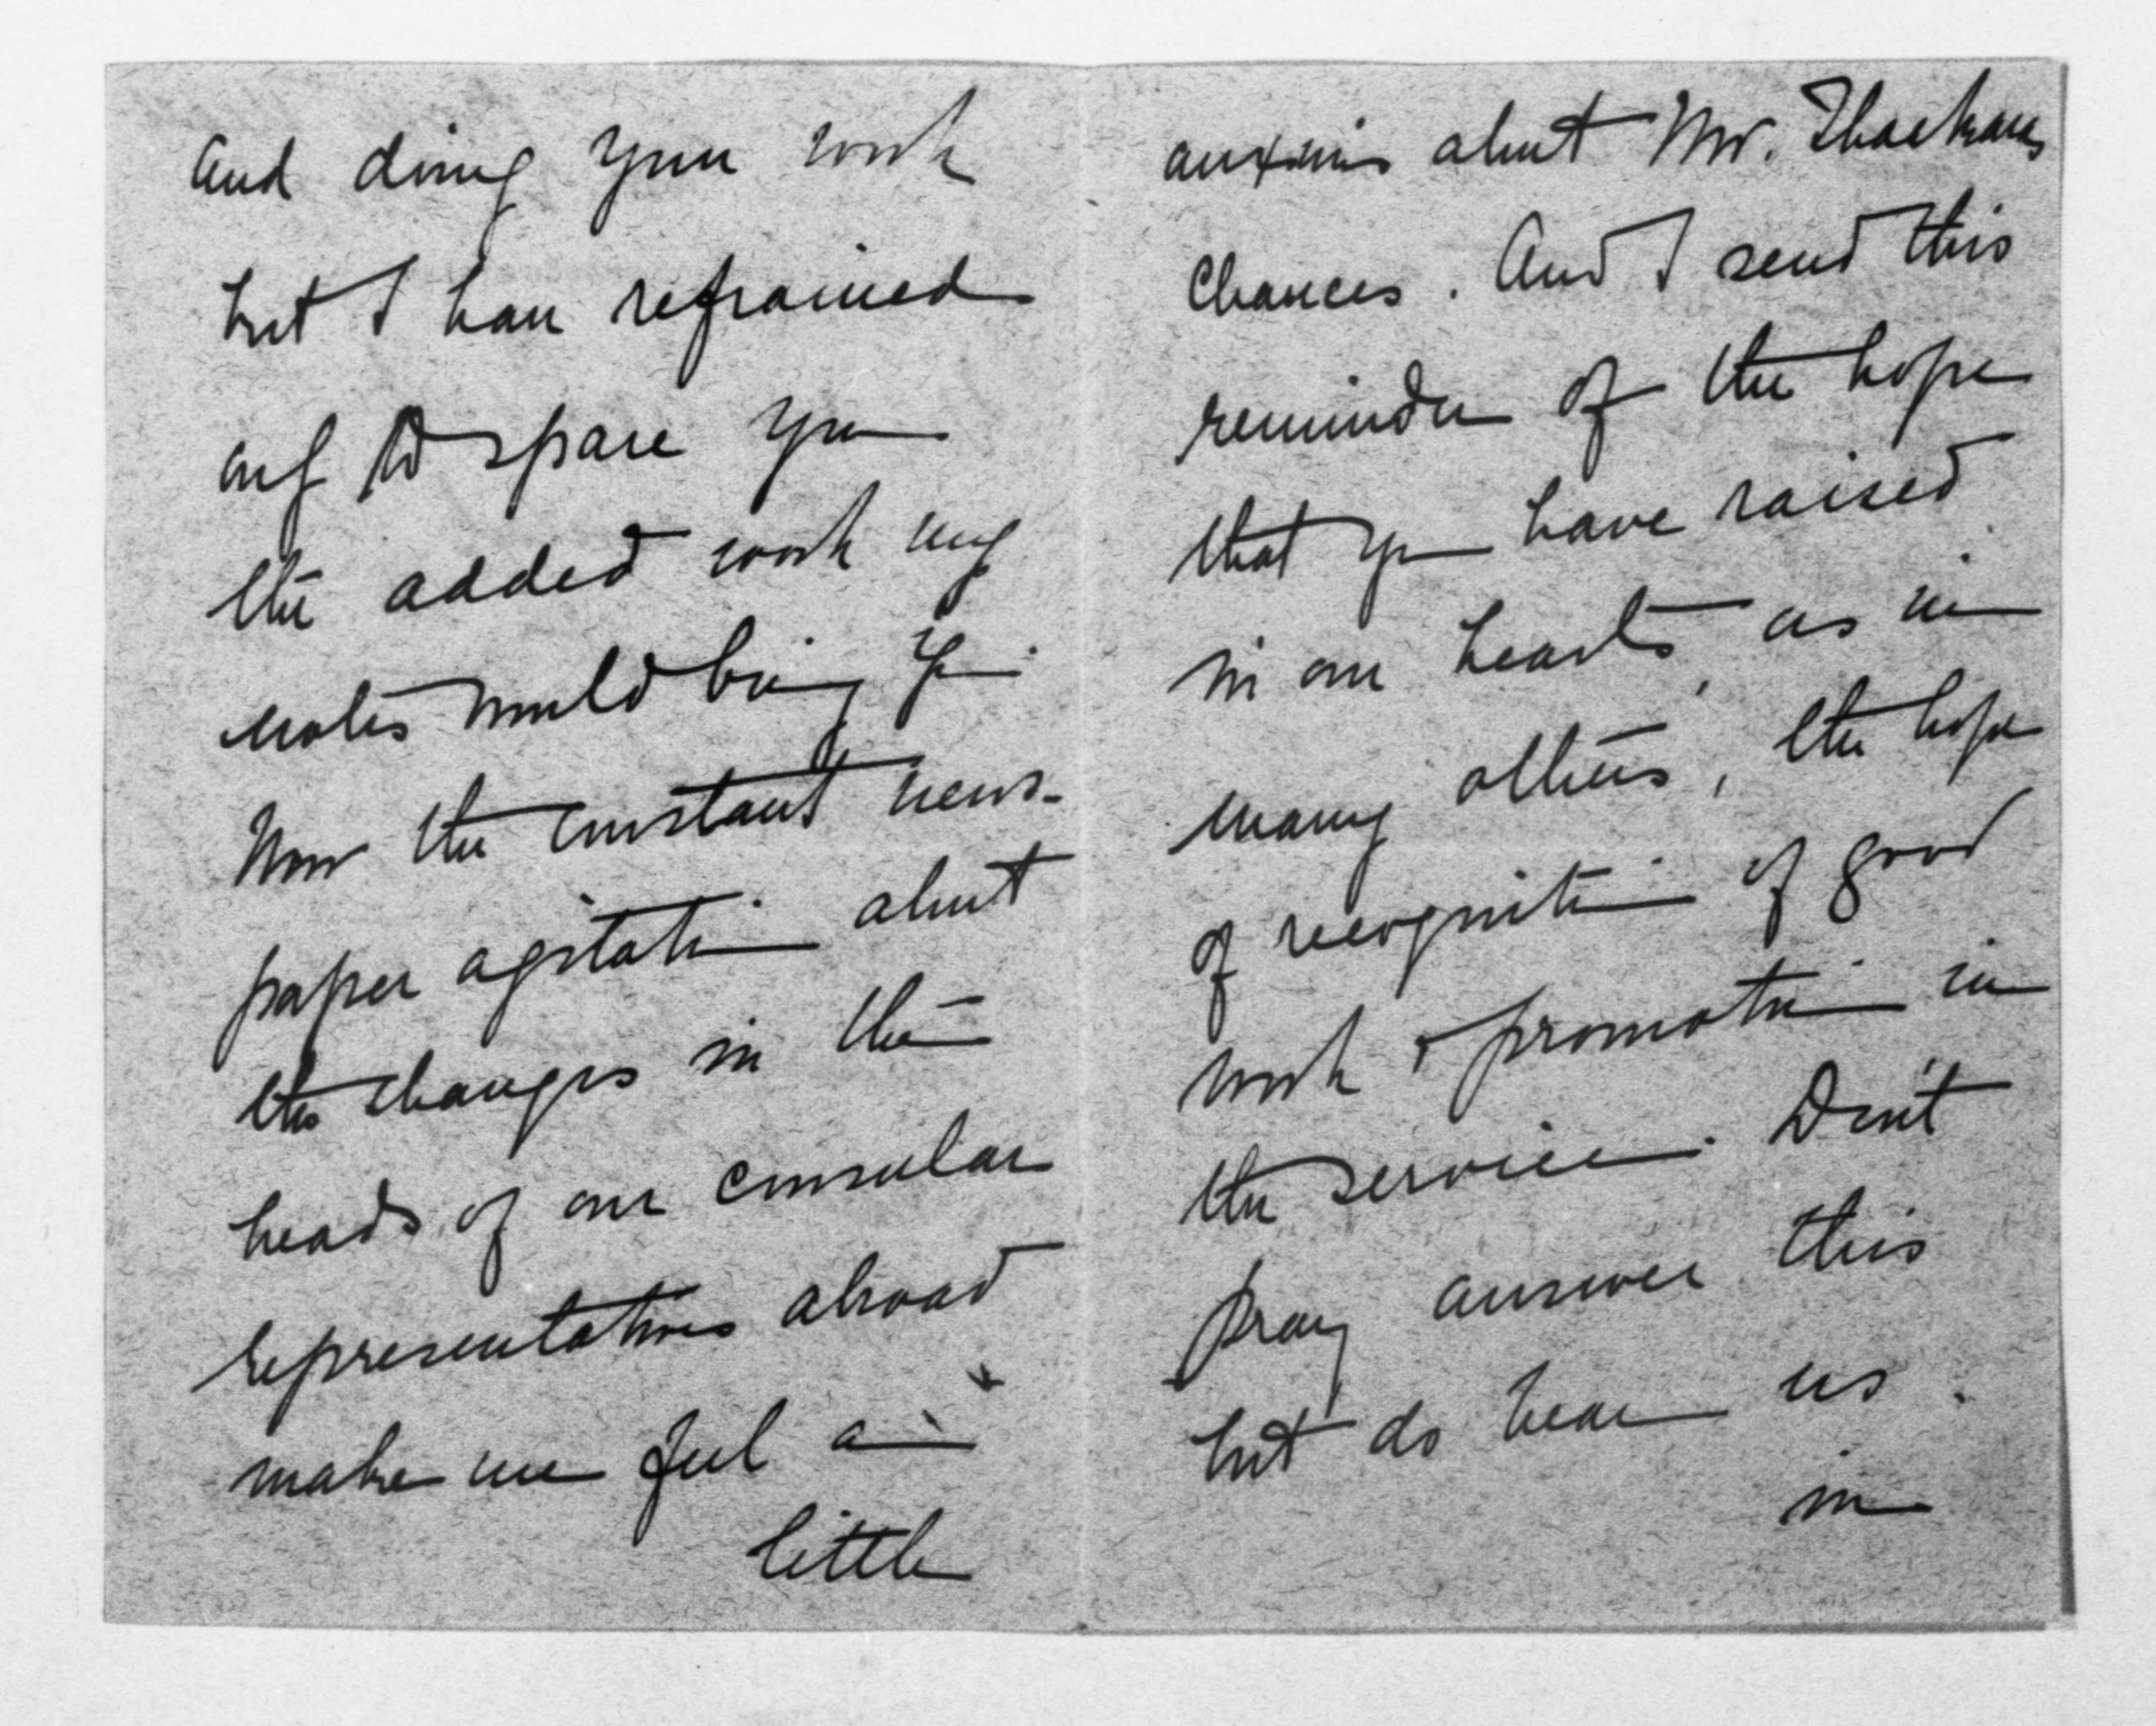 and doing your work
but I have refrained
only to spare you
the added work my
notes would bring you.
Now the constant news-
paper agitation about
the changes in the
heads of our consular
representatives abroad
make me feel a
little
anxious about Mr. Thackara's
chances. And I send this
reminder of the hope
that you have raised
in our hearts, as in
many others, the hope
of recognition of good
work & promotion in
the service. Don't
pray answer this
but do bear us
in